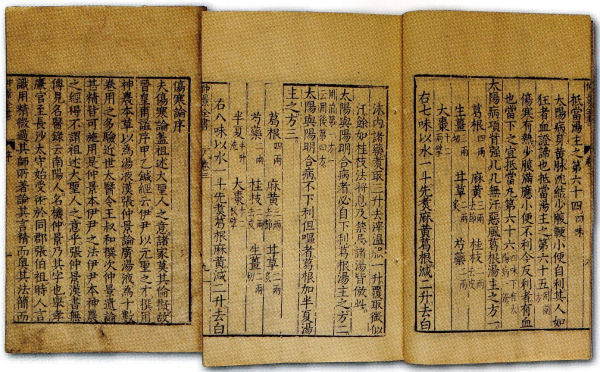 抵當湯主之第六十四 四味
太陽病身黃脉沈結少腹鞕小便自利其人如
狂者血證諦也抵當湯主之第六十五
傷寒有熱少腹滿應小便不利今反利者有血
也當下之宜抵當丸第六十六
太陽病項背强几几無汗惡風葛根湯主之方一
葛根四兩 麻黃三兩 桂枝二兩
生薑三兩 甘草二兩 芍藥二兩
大棗
右七味以水一斗先煮麻黃葛根減二升去白
沫內諸藥煮取三升去滓溫服一升覆取微似
汗餘如桂枝法將息及禁忌諸湯皆倣此
太陽與陽明合病者必自下利葛根湯主之方二
太陽與陽明合病不下利但嘔者葛根加半夏湯
主之方三
葛根四兩 麻黃三兩 甘草二兩
芍藥二兩 桂枝二兩 生薑二兩
半夏 大棗
右八味以水一斗先煮葛根麻黃減二升去白
傷寒論序
夫傷寒論蓋祖述大聖人之意諸家莫其倫擬故
晉皇甫謐序甲乙鍼經云伊尹以元聖之才撰用
神農本草以為湯液漢張仲景論廣湯液為十數
卷用之多驗近世太醫令王叔和撰次仲景遺論
甚精皆可施用是仲景本伊尹之法伊尹本神農
之經得不謂祖述大聖人之意乎張仲景漢書無
傳見名醫錄云南陽人名機仲景乃其字也舉孝
廉官至長沙太守始受術於同郡張伯祖時人言
識用精微過其師所著論其言精而奧其法簡而